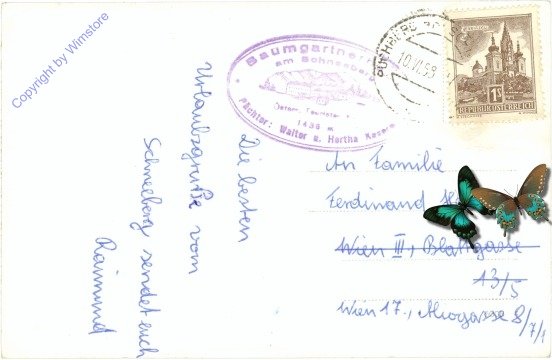 Copyright by Wimstore
Baumgartner
am Schneeberg
1436 m
Pächter: Walter u. Hertha
PUCHBERG
10.VI.58
1S
REPUBLIK ÖSTERREICH
Die besten
Urlaubsgrüße vom
Schneeberg sendet euch
Raimund
An Familie
Ferdinand
Wien III, Blattgasse
13/5
Wien 17., Mirogasse 8/7/1